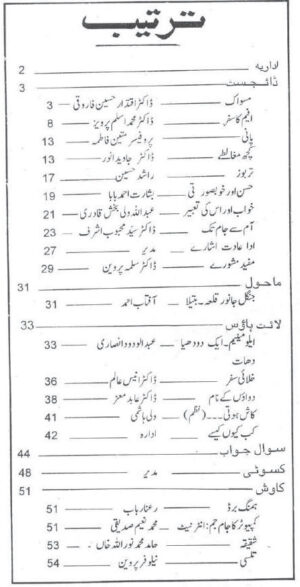 ترتیب
اداریہ 2
ڈائجسٹ 3
مسواک ڈاکٹر اقتدار حسین فاروقی 3
افیم کا سفر ڈاکٹر محمد اسلم پرویز 8
پانی پروفیسر متین فاطمہ 13
کچھ مغالطے ڈاکٹر جاوید انور 13
تربوز راشد حسین 17
حسن اور خوبصورتی بشارت احمد بابا 19
خواب اور اس کی تعبیر عبداللہ ولی بخش قادری 21
آم سے جام تک ڈاکٹر سید محبوب اشرف 23
ادا عادت اشارے مدیر 27
مفید مشورے ڈاکٹر سلمہ پروین 29
ماحول 31
جنگل جانور قلعہ۔ بتیلا آفتاب احمد 31
لائٹ ہاؤس 33
ایلومینیم۔ ایک دودھیا دھات عبدالودود انصاری 33
خلائی سفر ڈاکٹر انیس عالم 36
دواؤں کے نام ڈاکٹر عابد معز 38
کاش ہوتی... (نظم) ولی ہاشمی 41
کب کیوں کیسے ادارہ 42
سوال جواب 44
کسوٹی مدیر 48
کاوش 51
ہمنگ برڈ رعنا رباب 51
کمپیوٹر کا جام جم: انٹرنیٹ محمد نعیم صدیقی 51
شفیقہ حامد محمد نور اللہ خاں 53
تلسی نیلوفر پروین 54